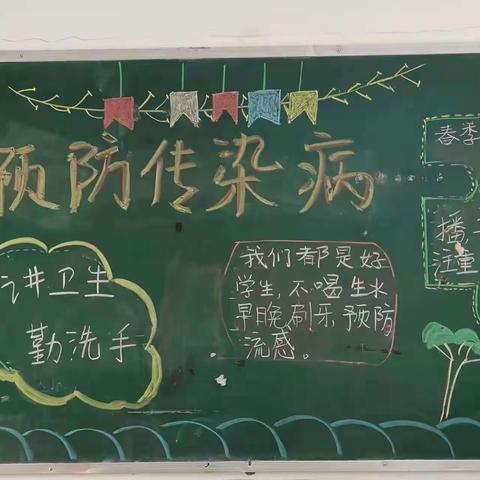 预防传染病
讲卫生
勤洗手
我们都是好
学生，不喝生水
早晚刷乐预防
流感。
春季
播
注重